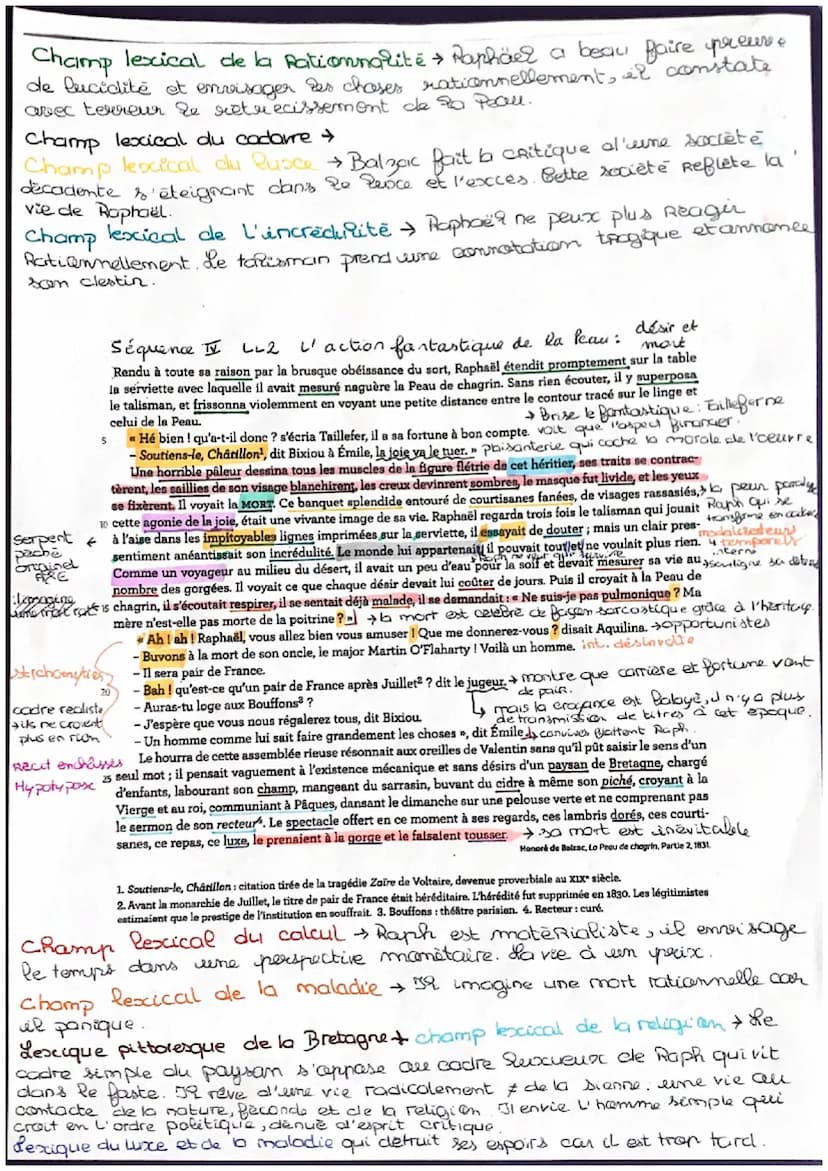 Champ lexical de la Rationnalité → Raphäel a beau faire preuve
de lucidité et envisager les choses rationnellement, il constate
avec terreur le retrecissement de la Peau.
Champ lexical du cadavre →
Champ lexical du luxe → Balzac fait la critique d'une société
décadente s'éteignant dans le luxe et l'excès. Cette société Reflète la
vie de Raphaël.
Champ lexical de l'incrédulité → Raphaël ne peux plus Réagir
Rationnellement. Le talisman prend une connotation tragique et annonce
son destin.
Séquence IV LL2 L'action fantastique de la Peau : désir et
mort
Rendu à toute sa raison par la brusque obéissance du sort, Raphaël étendit promptement sur la table
la serviette avec laquelle il avait mesuré naguère la Peau de chagrin. Sans rien écouter, il y superposa
le talisman, et frissonna violemment en voyant une petite distance entre le contour tracé sur le linge et
celui de la Peau.
→ Brise le fantastique : Taillefer ne
voit que l'aspect financier.
5 « Hé bien ! qu'a-t-il donc ? s'écria Taillefer, il a sa fortune à bon compte.
– Soutiens-le, Châtillon¹, dit Bixiou à Émile, la joie va le tuer. » Plaisanterie qui cache la morale de l'œuvre
Une horrible pâleur dessina tous les muscles de la figure flétrie de cet héritier, ses traits se contrac-
tèrent, les saillies de son visage blanchirent, les creux devinrent sombres, le masque fut livide, et les yeux
se fixèrent. Il voyait la MORT. Ce banquet splendide entouré de courtisanes fanées, de visages rassasiés,
→ la peur paralyse
Raph qui se
transforme en cadavre
10 cette agonie de la joie, était une vivante image de sa vie. Raphaël regarda trois fois le talisman qui jouait
à l'aise dans les impitoyables lignes imprimées sur la serviette, il essayait de douter ; mais un clair pres-
sentiment anéantissait son incrédulité. Le monde lui appartenait, il pouvait tout, et ne voulait plus rien.
serpent
peché
originel
modalisateurs
temporels
interne
Comme un voyageur au milieu du désert, il avait un peu d'eau pour la soif et devait mesurer sa vie au
nombre des gorgées. Il voyait ce que chaque désir devait lui coûter de jours. Puis il croyait à la Peau de
15 chagrin, il s'écoutait respirer, il se sentait déjà malade, il se demandait : « Ne suis-je pas pulmonique ? Ma
mère n'est-elle pas morte de la poitrine ? » → la mort est celebré de façon sarcastique grâce à l'héritage.
« Ah ! ah ! Raphaël, vous allez bien vous amuser ! Que me donnerez-vous ? disait Aquilina. → opportunistes
– Buvons à la mort de son oncle, le major Martin O'Flaharty ! Voilà un homme. int. désinvolte
– Il sera pair de France.
stichomyties
20 – Bah ! qu'est-ce qu'un pair de France après Juillet² ? dit le jugeur. → montre que carrière et fortune vont
de pair.
– Auras-tu loge aux Bouffons³ ?
↳ mais la croyance est balayé, il n'y a plus
de transmission de titres à cet epoque.
cadre realiste
→ ils ne croient
plus en rien
– J'espère que vous nous régalerez tous, dit Bixiou.
– Un homme comme lui sait faire grandement les choses », dit Émile. ↳ convives flattent Raph.
Récit enchâssés
Hypotypose
Le hourra de cette assemblée rieuse résonnait aux oreilles de Valentin sans qu'il pût saisir le sens d'un
25 seul mot ; il pensait vaguement à l'existence mécanique et sans désirs d'un paysan de Bretagne, chargé
d'enfants, labourant son champ, mangeant du sarrasin, buvant du cidre à même son piché, croyant à la
Vierge et au roi, communiant à Pâques, dansant le dimanche sur une pelouse verte et ne comprenant pas
le sermon de son recteur⁴. Le spectacle offert en ce moment à ses regards, ces lambris dorés, ces courti-
sanes, ce repas, ce luxe, le prenaient à la gorge et le faisaient tousser. → sa mort est inévitable
Honoré de Balzac, La Peau de chagrin, Partie 2, 1831.
1. Soutiens-le, Châtillon : citation tirée de la tragédie Zaïre de Voltaire, devenue proverbiale au XIXᵉ siècle.
2. Avant la monarchie de Juillet, le titre de pair de France était héréditaire. L'hérédité fut supprimée en 1830. Les légitimistes
estimaient que le prestige de l'institution en souffrait. 3. Bouffons : théâtre parisien. 4. Recteur : curé.
Champ lexical du calcul → Raph est matérialiste, il envisage
le temps dans une perspective monétaire. La vie à un prix.
Champ lexical de la maladie → Il imagine une mort rationnelle car
il panique.
Lexique pittoresque de la Bretagne + champ lexical de la religion → Le
cadre simple du paysan s'oppose au cadre luxueux de Raph qui vit
dans le faste. Il rêve d'une vie radicalement ≠ de la sienne. une vie au
contacte de la nature, féconde et de la religion. Il envie l'homme simple qui
croit en l'ordre politique, dénué d'esprit critique.
Lexique du luxe et de la maladie qui detruit ses espoirs car il est trop tard.